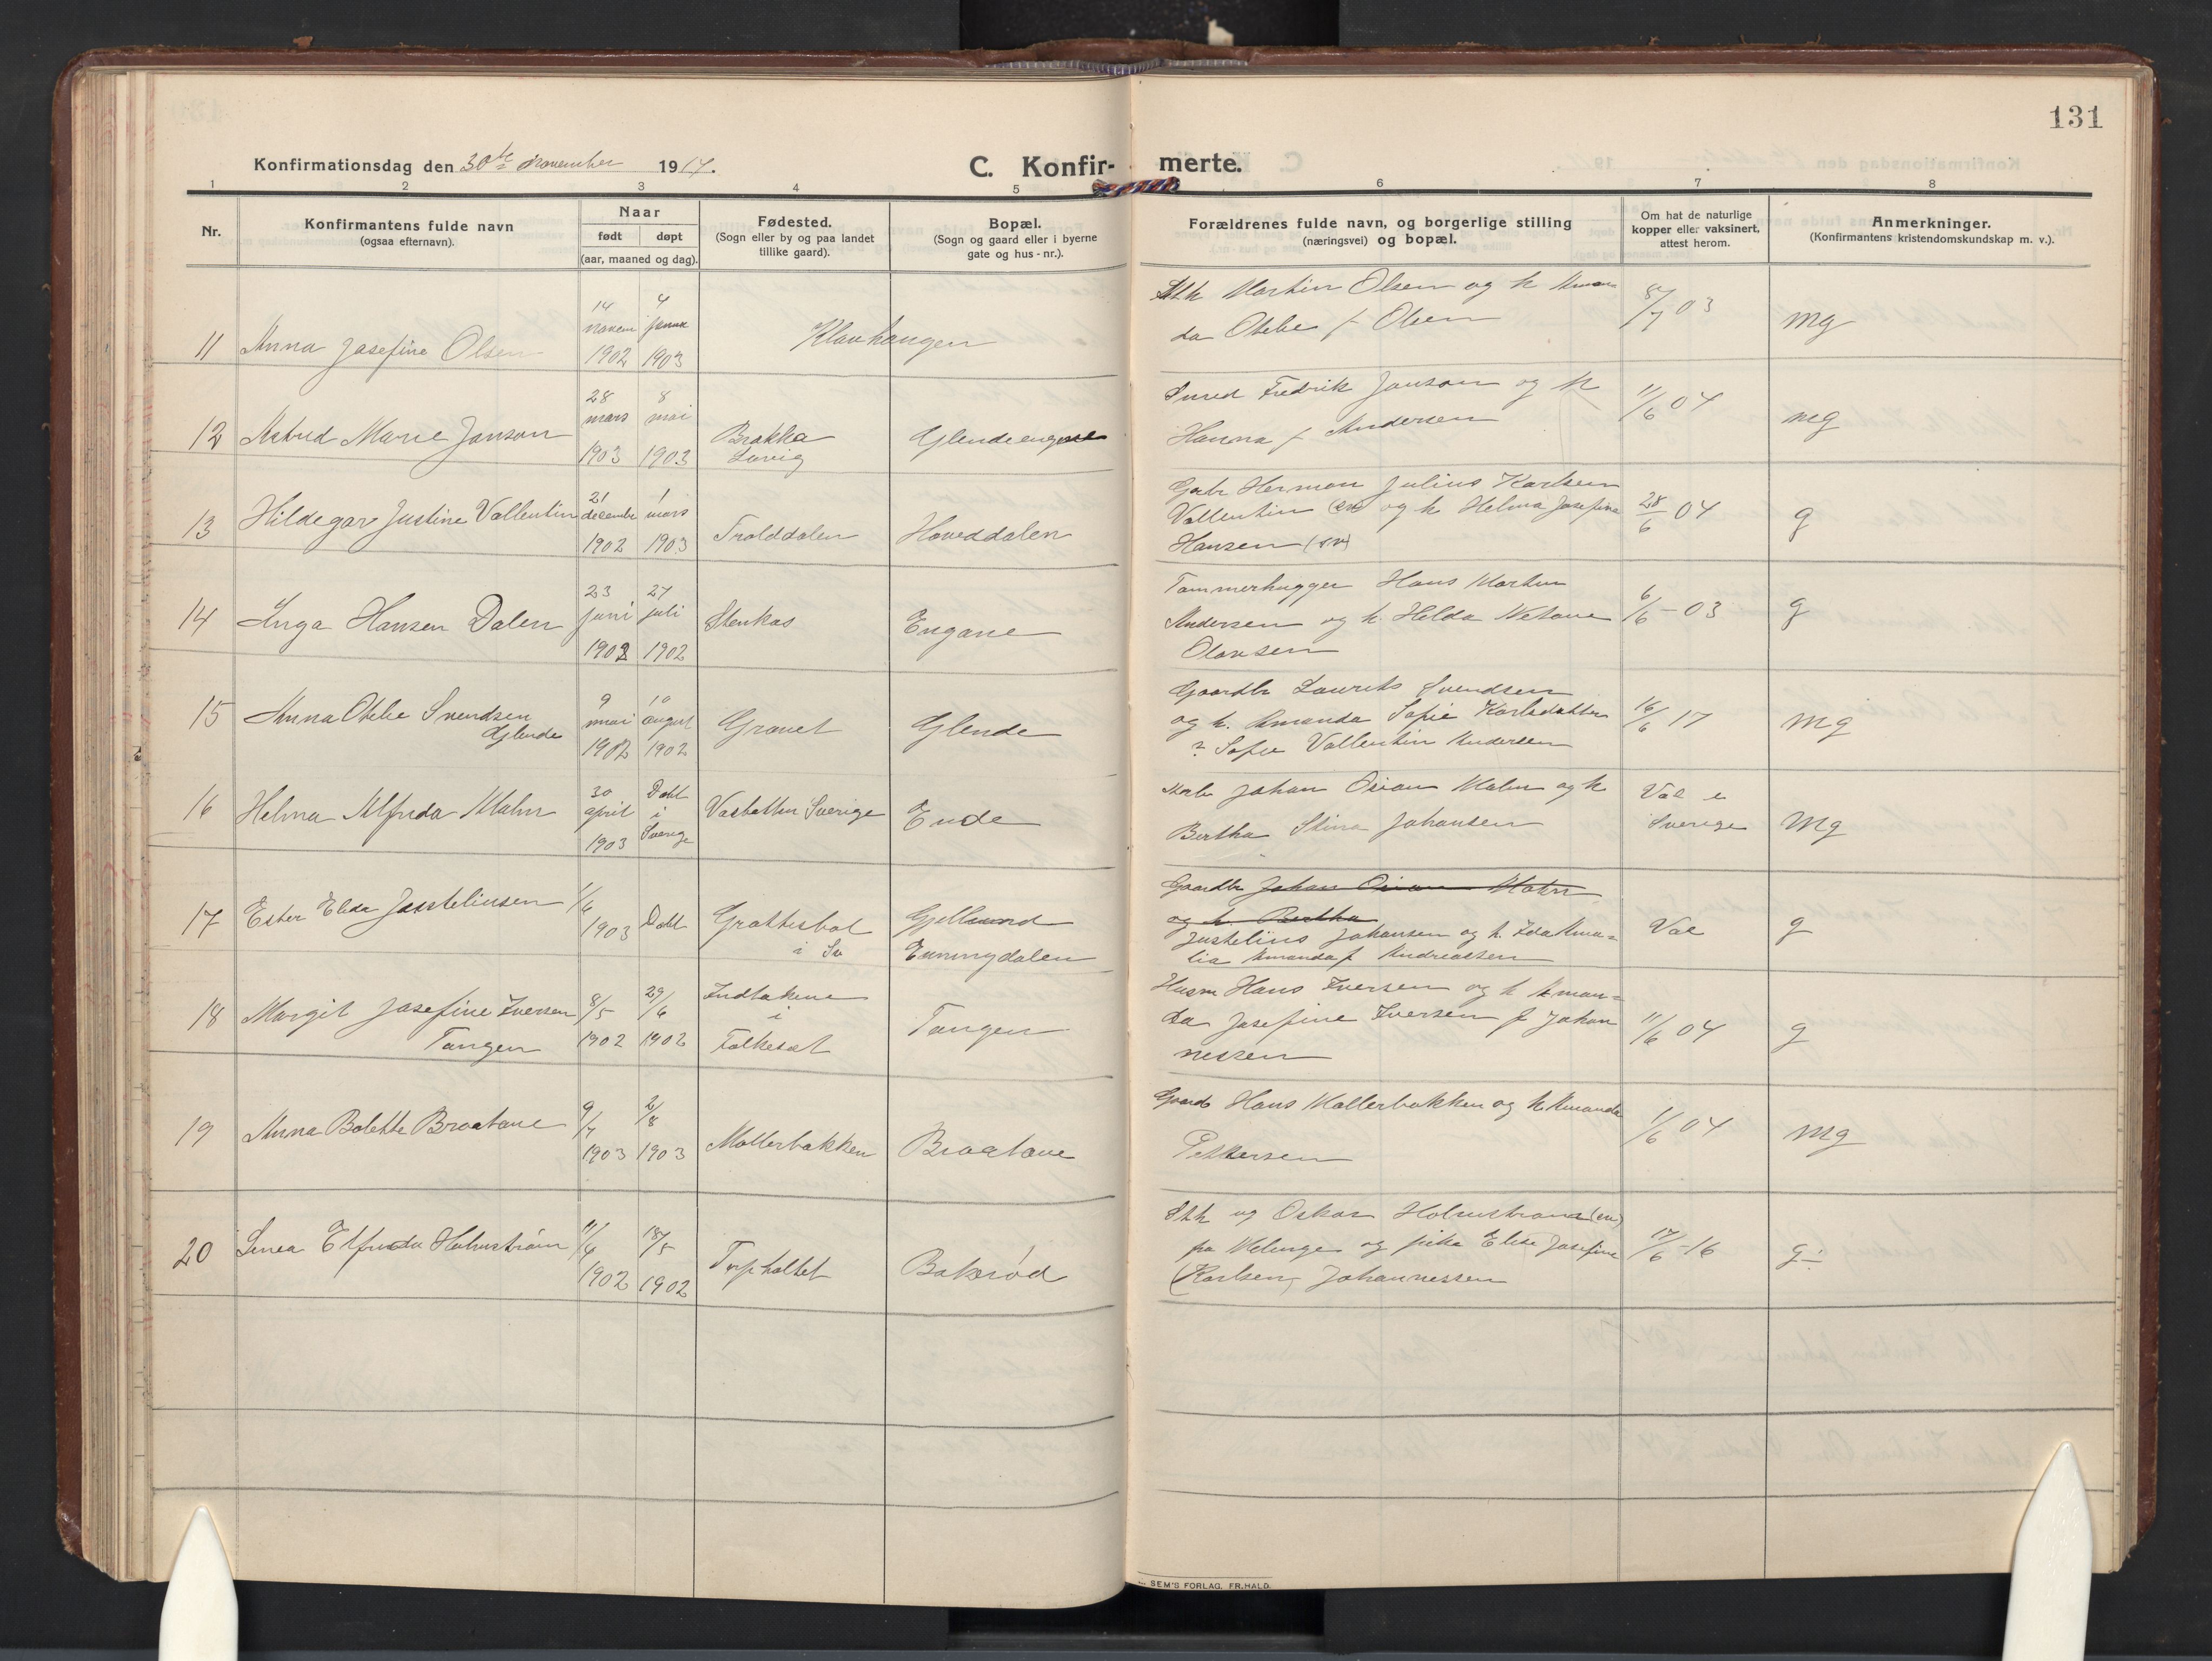 131
Konfirmationsdag den 30te November 1917.
C. Konfir- merte.
1 2 3 4 5 6 7 8
Nr.
Konfirmantens fulde navn
(ogsaa efternavn).
Naar
født døpt
(aar, maaned og dag).
Fødested.
(Sogn eller by og paa landet
tillike gaard).
Bopæl.
(Sogn og gaard eller i byerne
gate og hus-nr.).
Forældrenes fulde navn, og borgerlige stilling
(næringsvei) og bopæl.
Om hat de naturlige
kopper eller vaksinert,
attest herom.
Anmerkninger.
(Konfirmantens kristendomskundskap m. v.).
11 Anna Josefine Olsen
14 novem 1902
4 januar 1903
Klavhaugen
Martin Olsen og h Aman
da Otelie f Olsen
8/7 03
mg
12 Astrud Marie Janson
28 mars 1903
8 mai 1903
Brakka
Larvig
Glendeengene
Smed Fredrik Janson og h
Hanna f Andersen
11/6 04
mg
13 Hildegar Justine Vallentin
21 december 1902
1 mars 1903
Trolddalen
Hoveddalen
Gbr Herman Julius Karlsen
Vallentin (sv) og h Helma Josefine
Hansen (sv)
28/6 04
g
14 Inga Hansen Dalen
23 juni 1902
27 juli 1902
Stenkas
Engane
Tømmerhugger Hans Martin
Andersen og h. Helda Netane
Olavsen
6/6-03
g
15 Anna Otelie Svendsen
Glende
9 mai 1902
10 august 1902
Gravet
Glende
Gaardbr Laurits Svendsen
og h. Amanda Sofie Karlsdatter
? Sofie Vallentin Andersen
16/6 17
mg
16 Helma Alfrida Malm
30 april 1903
Døbt i Sverige
Sverige
Ende
Johan Malm og h
Bertha Stina Johansen
Vac i
Sverige
Mg
17 Ester Elida Justelinsen
1/6 1903
Døbt
Grøttisbøl
i Sv
Gjellsund
Emmydalen
Gaardbr Johan Malm
og h. Bertha
Justelius Johansen og h. Ida Ama=
lia Amanda f Andreassen
Vac
g
18 Margit Josefine Iversen
Tangen
8/5 1902
29/6 1902
Indlakene
i
Falkesæt
Tangen
Husm Hans Iversen og h Aman=
da Josefine Iversen f Johan
nessen
11/6 04
g
19 Anna Bolette Braatane
9/7 1903
2/8 1903
Møllerbakken
Braatane
Gaardb Hans Møllerbakken og h Amanda
Pettersen
1/6 04
mg
20 Linea Elfrida Holmstrøm
11/4 1902
18/5 1902
Torpholtet
Bakerød
og Oskar Holmstrøm (sv)
paa Helinge og pike Elise Josefine
(Karlsen) Johannessen
17/6-16
g÷
SEM'S FORLAG, FR.HALD.